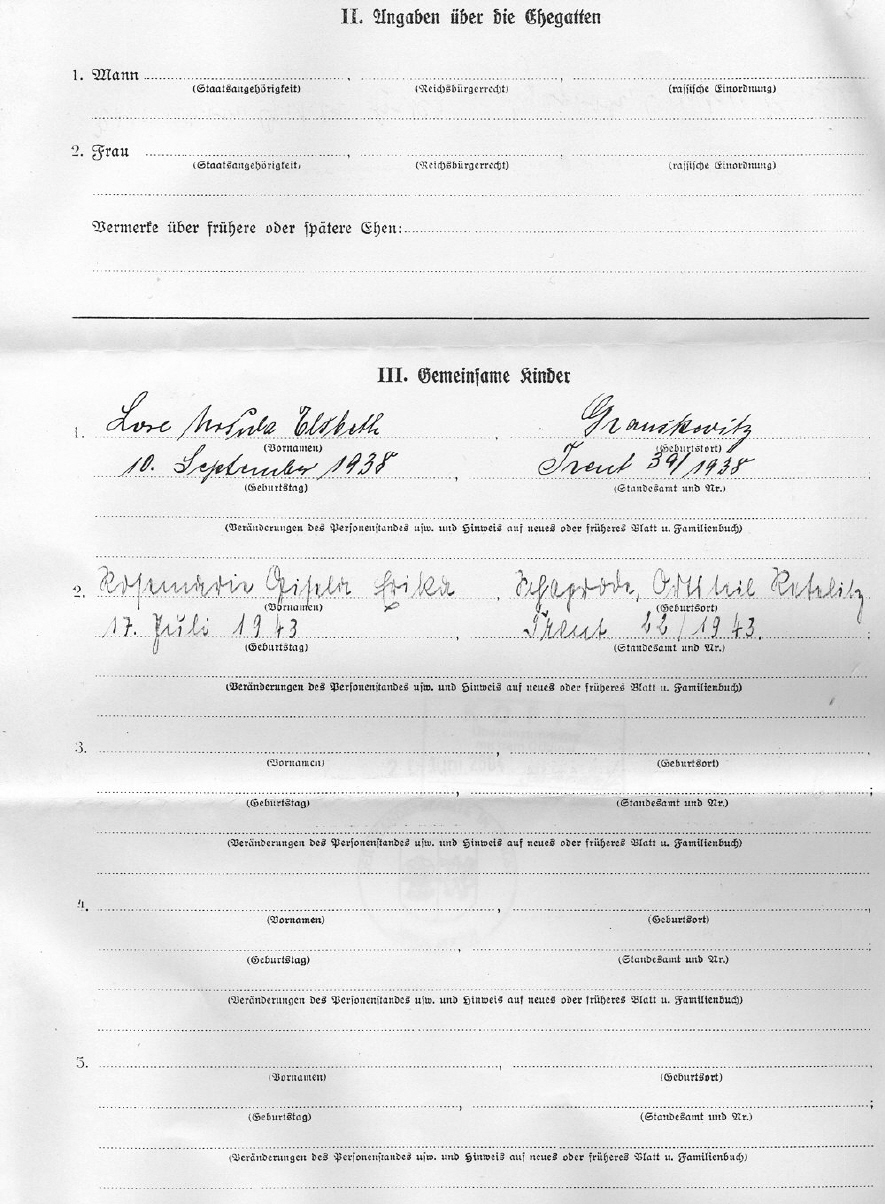 II. Angaben über die Ehegatten
1. Mann
(Staatsangehörigkeit) (Reichsbürgerrecht) (rassische Einordnung)
2. Frau
(Staatsangehörigkeit) (Reichsbürgerrecht) (rassische Einordnung)
Vermerke über frühere oder spätere Ehen:
III. Gemeinsame Kinder
1. Lore Ursula Elsbeth, Granskevitz
(Vornamen) (Geburtsort)
10. September 1938, Trent 39/1938
(Geburtstag) (Standesamt und Nr.)
(Veränderungen des Personenstandes usw. und Hinweis auf neues oder früheres Blatt u. Familienbuch)
2. Rosemarie Gisela Erika, Schaprode, Ortsteil Retelitz
(Vornamen) (Geburtsort)
17. Juli 1943, Trent 22/1943.;
(Geburtstag) (Standesamt und Nr.)
(Veränderungen des Personenstandes usw. und Hinweis auf neues oder früheres Blatt u. Familienbuch)
3.
(Vornamen) (Geburtsort)
(Geburtstag) (Standesamt und Nr.)
(Veränderungen des Personenstandes usw. und Hinweis auf neues oder früheres Blatt u. Familienbuch)
4.
(Vornamen) (Geburtsort)
(Geburtstag) (Standesamt und Nr.)
(Veränderungen des Personenstandes usw. und Hinweis auf neues oder früheres Blatt u. Familienbuch)
5.
(Vornamen) (Geburtsort)
(Geburtstag) (Standesamt und Nr.)
(Veränderungen des Personenstandes usw. und Hinweis auf neues oder früheres Blatt u. Familienbuch)